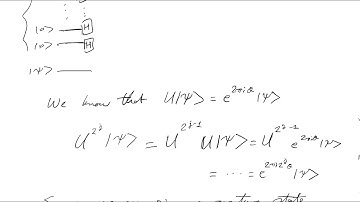 |0> H
|0> H
|ψ>
We know that U|ψ> = e^{2πiθ}|ψ>
U^{2^j}|ψ> = U^{2^j-1} U|ψ> = U^{2^j-1} e^{2πiθ}|ψ>
= ... = e^{2πi2^jθ}|ψ>